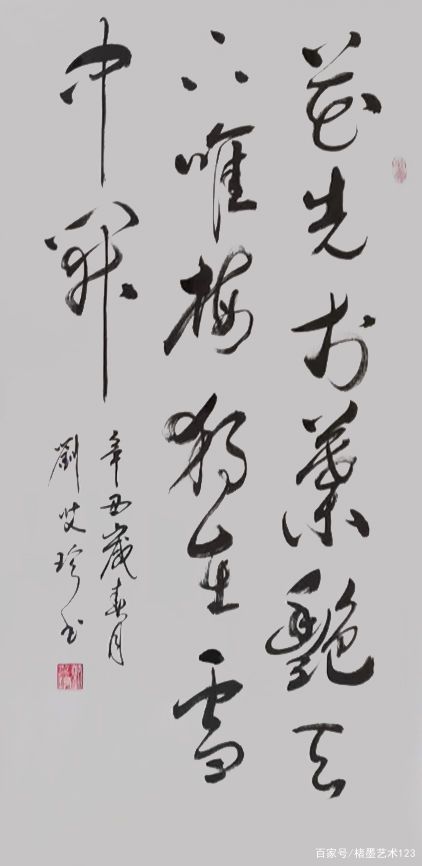 花先于叶艳天
下唯梅独在雪
中开
辛丑岁春月
刘艾珍书
百家号/楮墨艺术123